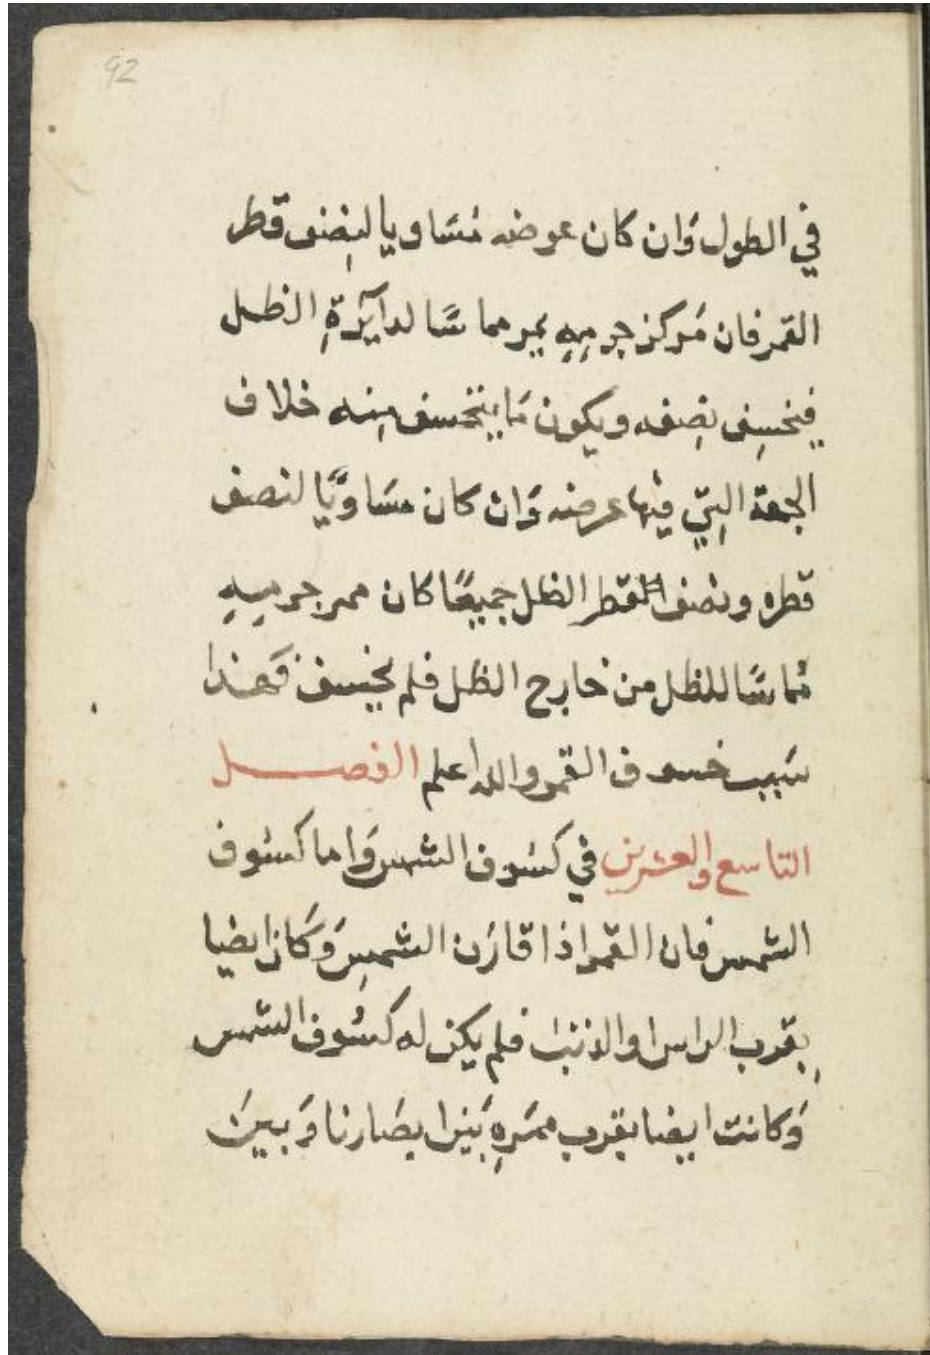 92
في الطول وَان كان عرضه مُسَاويا لنِصف قطر
القمر فان مَركز جرمِهِ يمر مماسًا لدآيَرةِ الظل
فينخسِف نِصفه ويكون مَا ينخسف مِنه خلاف
الجهة التِي فيها عرضه وَان كان مسَاويًا لنصف
قطره ونصف القطر الظل جميعًا كان ممر جرمِهِ
مُماسًا للظل من خارج الظل فلم يخسف فهَذا
سَبب خسوف القمر والله اعلم الفصل
التاسع والعشرين في كسُوف الشمس وَاما كسُوف
الشمس فان القمر اذا قارَن الشمسِ وَكَان ايضا
بِقرب الراس او الذنب فلم يكن له كسُوف الشمس
وَكانت ايضا بقرب ممَرهِ بَين ابصَارنا وَبينَ